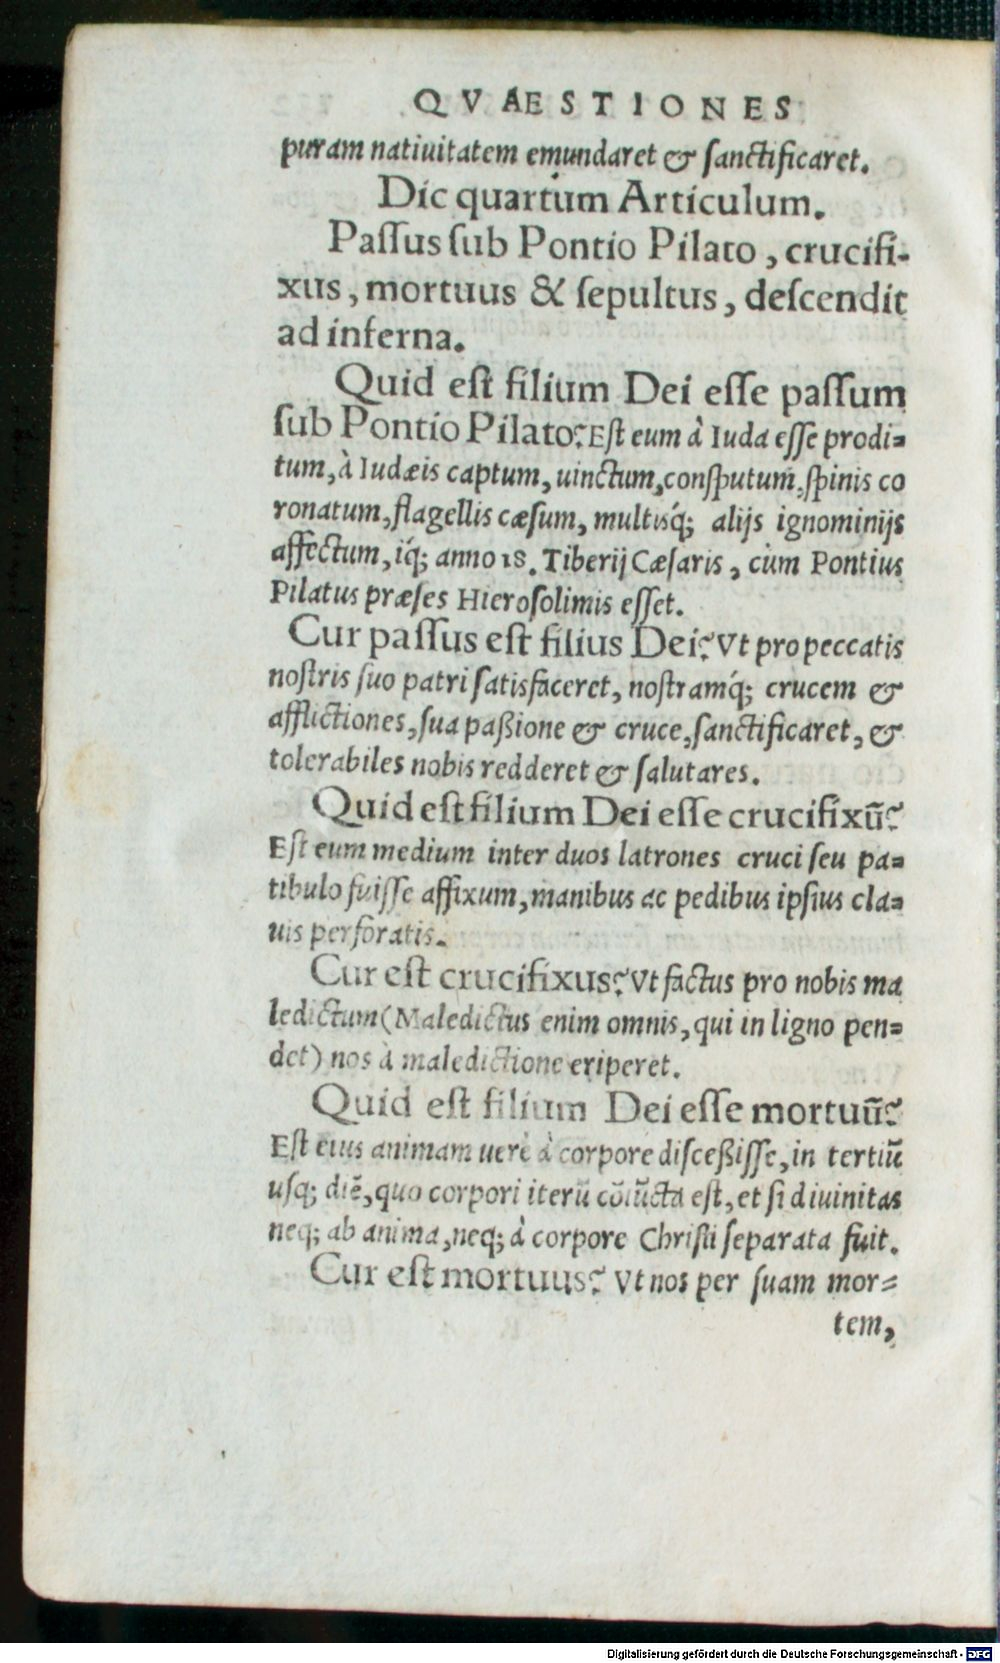 QVAESTIONES
puram natiuitatem emundaret & ſanctificaret.
Dic quartum Articulum.
Paſſus ſub Pontio Pilato, crucifi-
xus, mortuus & ſepultus, deſcendit
ad inferna.
Quid eſt filium Dei eſſe paſſum
ſub Pontio Pilato? Eſt eum à Iuda eſſe prodi=
tum, à Iudæis captum, uinctum, conſputum, ſpinis co
ronatum, flagellis cæſum, multisq́; alijs ignominijs
affectum, iq́; anno 18. Tiberij Cæſaris, cùm Pontius
Pilatus præſes Hieroſolimis eſſet.
Cur paſſus eſt filius Dei? Vt pro peccatis
noſtris ſuo patri ſatisfaceret, noſtramq́; crucem &
afflictiones, ſua paßione & cruce, ſanctificaret, &
tolerabiles nobis redderet & ſalutares.
Quid eſt filium Dei eſſe crucifixũ?
Eſt eum medium inter duos latrones cruci ſeu pa=
tibulo fuiſſe affixum, manibus ac pedibus ipſius cla=
uis perforatis.
Cur eſt crucifixus? Vt factus pro nobis ma
ledictum (Maledictus enim omnis, qui in ligno pen=
det) nos à maledictione eriperet.
Quid eſt filium Dei eſſe mortuũ?
Eſt eius animam uerè à corpore diſceßiſſe, in tertiũ
uſq; diẽ, quo corpori iterũ cõiũcta eſt, et ſi diuinitas
neq; ab anima, neq; à corpore Chriſti ſeparata fuit.
Cur eſt mortuus? Vt nos per ſuam mor=
tem,
Digitalisierung gefördert durch die Deutsche Forschungsgemeinschaft - DFG